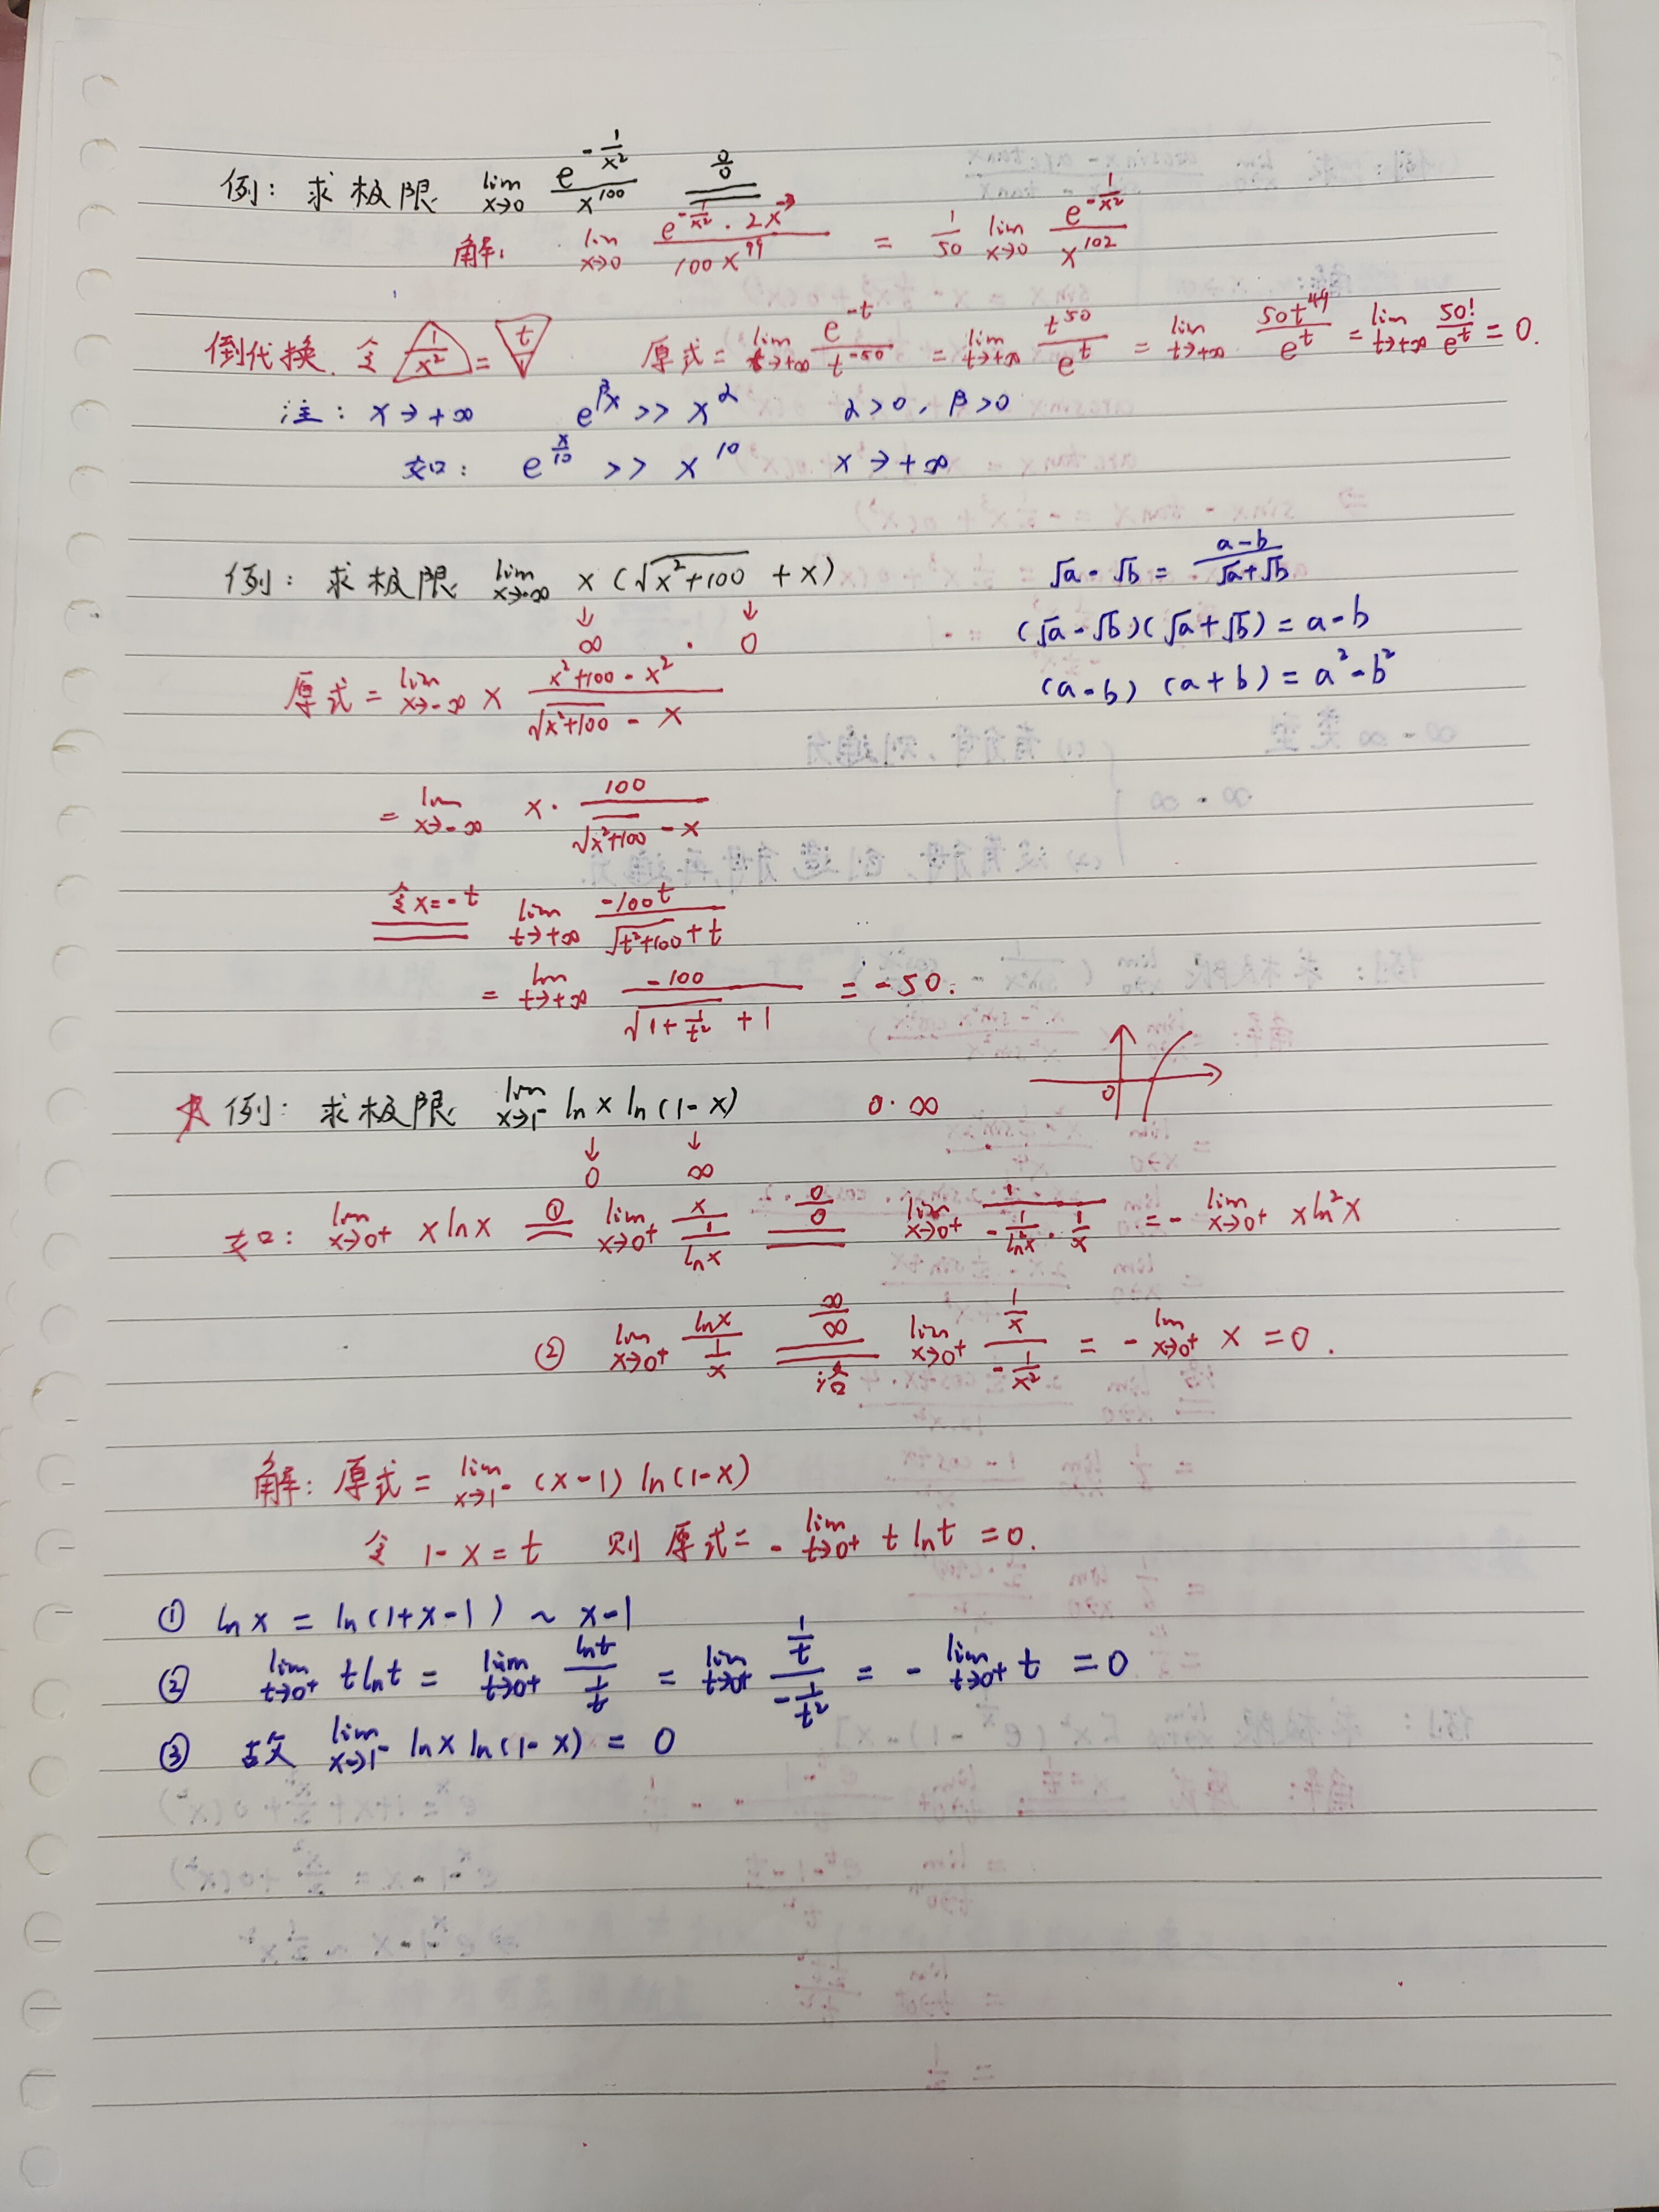 例: 求极限 lim x→0 e^(-1/x²) / x^100 = (0/0)
解: lim x→0 (e^(-1/x²) · 2x^(-3)) / (100x^99) = 1/50 lim x→0 e^(-1/x²) / x^102
倒代换. 令 1/x² = t/1 原式 = lim t→+∞ e^(-t) / t^(-50) = lim t→+∞ t^50 / e^t = lim t→+∞ 50t^49 / e^t = lim t→+∞ 50! / e^t = 0.
注: x→+∞ e^(βx) >> x^α α>0, β>0
如: e^(x/10) >> x^10 x→+∞
例: 求极限 lim x→-∞ x(√(x²+100) + x) √a - √b = (a-b)/(√a+√b)
↓ ↓
∞ · 0 (√a-√b)(√a+√b) = a-b
原式 = lim x→-∞ x (x²+100-x²)/(√(x²+100) - x) (a-b)(a+b) = a²-b²
= lim x→-∞ x · 100/(√(x²+100) - x)
令x=-t lim t→+∞ -100t/(√(t²+100)+t)
= lim t→+∞ -100/(√(1+1/t²) + 1) = -50.
例: 求极限 lim x→1⁻ ln x ln(1-x) 0·∞ 0
↓ ↓
0 ∞
如: lim x→0⁺ x ln x =① lim x→0⁺ x/(1/ln x) = (0/0) lim x→0⁺ 1/(-1/ln²x · 1/x) = - lim x→0⁺ x ln²x
② lim x→0⁺ ln x/(1/x) = (∞/∞) 洛 lim x→0⁺ (1/x)/(-1/x²) = - lim x→0⁺ x = 0.
解: 原式 = lim x→1⁻ (x-1) ln(1-x)
令 1-x=t 则 原式 = - lim t→0⁺ t ln t = 0.
① ln x = ln(1+x-1) ~ x-1
② lim t→0⁺ t ln t = lim t→0⁺ ln t/(1/t) = lim t→0⁺ (1/t)/(-1/t²) = - lim t→0⁺ t = 0
③ 故 lim x→1⁻ ln x ln(1-x) = 0